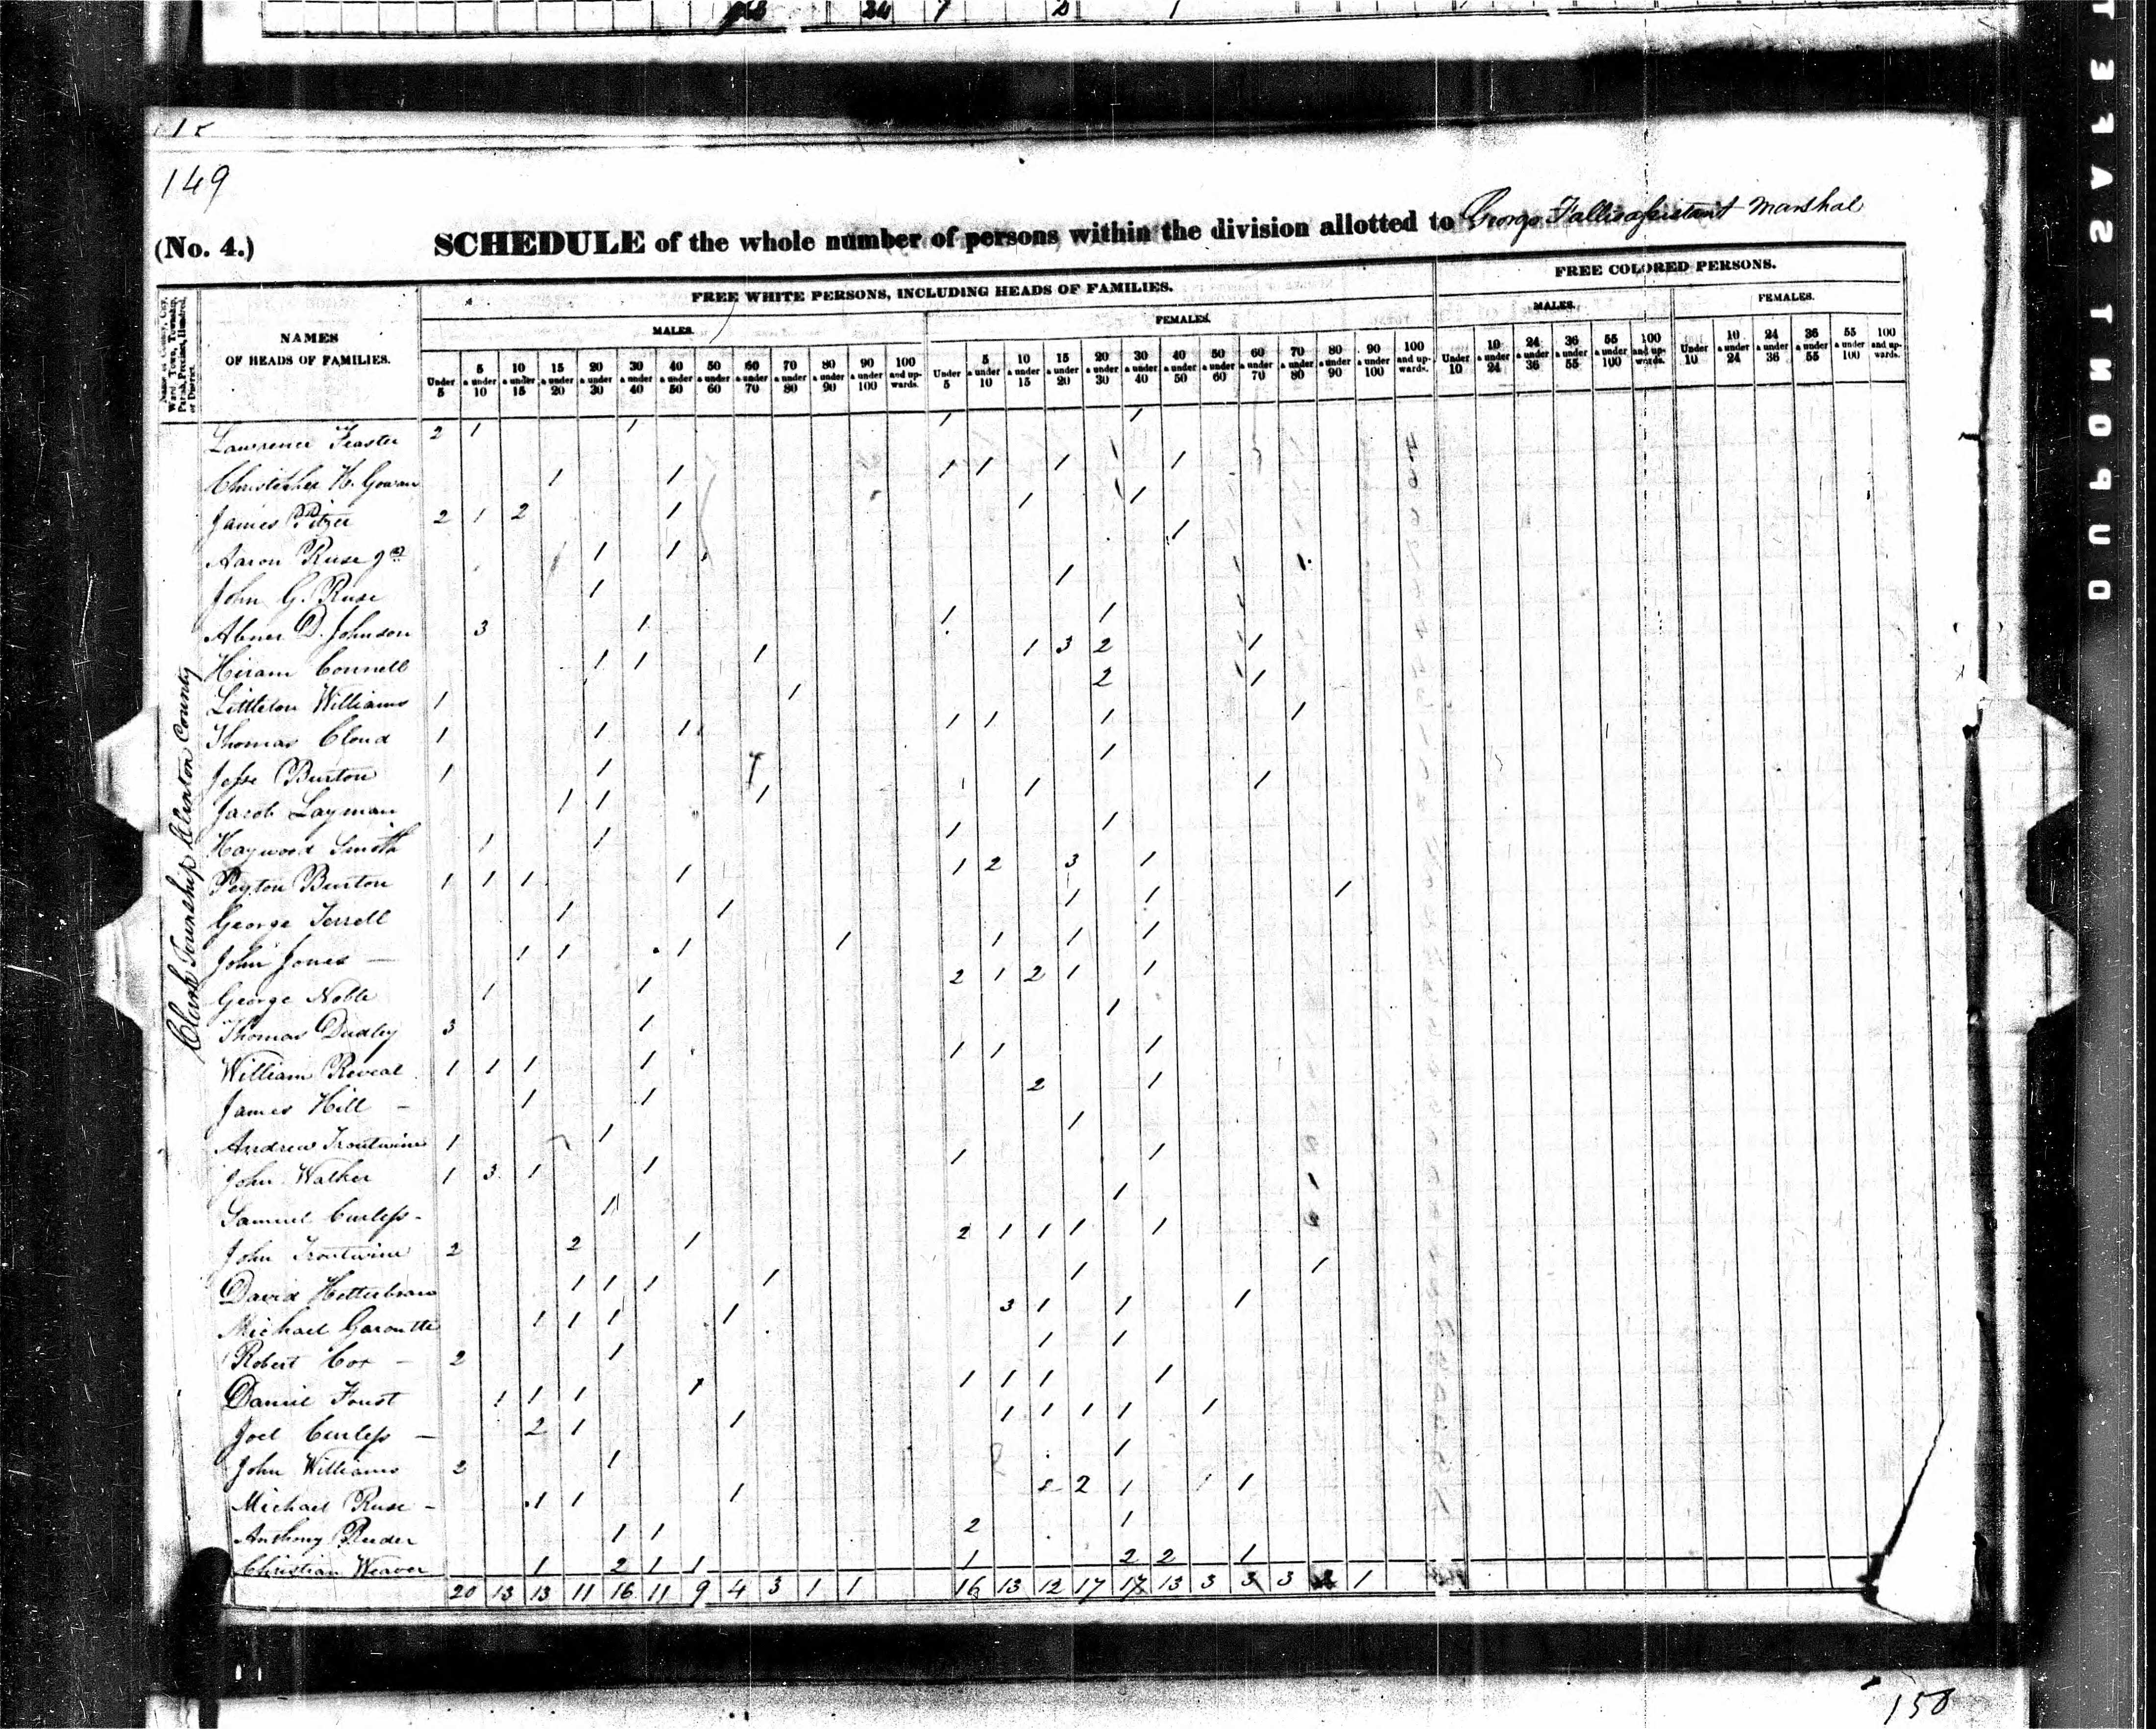 149
(No. 4.)
SCHEDULE of the whole number of persons within the division allotted to George Fallis assistant Marshal
FREE WHITE PERSONS, INCLUDING HEADS OF FAMILIES.
FREE COLORED PERSONS.
MALES.
FEMALES.
MALES.
FEMALES.
NAMES
OF HEADS OF FAMILIES.
Under 5
5 & under 10
10 & under 15
15 & under 20
20 & under 30
30 & under 40
40 & under 50
50 & under 60
60 & under 70
70 & under 80
80 & under 90
90 & under 100
100 and upwards.
Under 5
5 & under 10
10 & under 15
15 & under 20
20 & under 30
30 & under 40
40 & under 50
50 & under 60
60 & under 70
70 & under 80
80 & under 90
90 & under 100
100 and upwards.
Under 10
10 & under 24
24 & under 36
36 & under 55
55 & under 100
100 and upwards.
Under 10
10 & under 24
24 & under 36
36 & under 55
55 & under 100
100 and upwards.
Clark Township Clinton County
Lawrence Feaster 2 1 1 1 1
Christopher H. Gowan 1 1 1 1 1 1
James Pitzer 2 1 2 1 1 1
Aaron Ruse 1 1 1
John G. Ruse 1 1
Abner D. Johnson 3 1 1 1
Hiram Connell 1 1 1 1 3 2 1
Littleton Williams 1 1 2 1
Thomas Cloud 1 1 1 1 1 1 1
Jesse Burton 1 1 1
Jacob Layman 1 1 1 1 1
Haywood Smith 1 1 1 1
Peyton Burton 1 1 1 1 1 2 3 1
George Terrell 1 1 1 1 1
John Jones 1 1 1 1 1 1 1
George Noble 1 1 2 1 2 1 1
Thomas Dudley 3 1 1
William Reveal 1 1 1 1 1 1 1
James Hill 1 1 2 1
Andrew Troutwine 1 1 1
John Walker 1 3 1 1 1 1
Samuel Curless 1 1
John Troutwine 2 2 1 2 1 1 1 1
David Hetterbran 1 1 1 1 1 1
Michael Garoutte 1 1 1 1 3 1 1 1
Robert Cox 2 1 1 1
Daniel Foust 1 1 1 1 1 1 1 1
Joel Curless 2 1 1 1 1 1 1 1
John Williams 2 1 1
Michael Ruse 1 1 1 2 1 1
Anthony 1 1 2 1
Christian Weaver 1 2 1 1 1 2 2 1
20 13 13 11 16 11 9 4 3 1 1 16 13 12 17 17 13 3 3 3 1
150
DUPONT SAFET